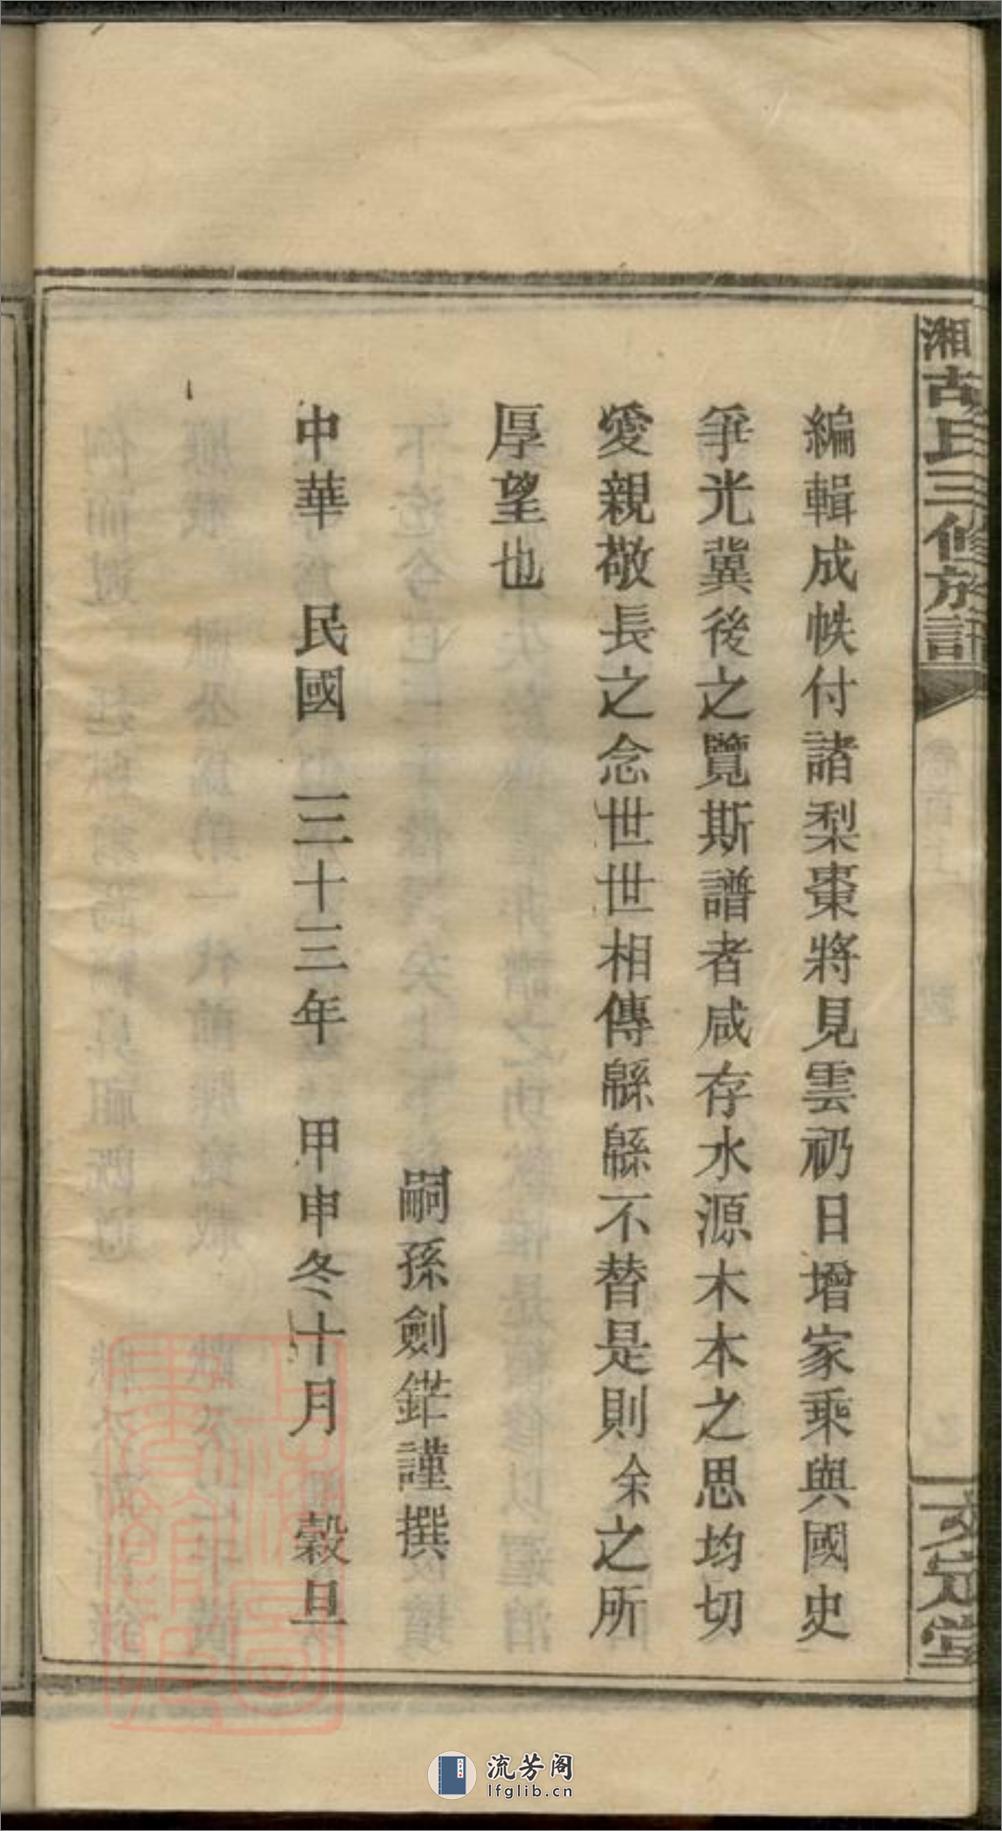 湘古胡氏三修族譜
文定堂
編輯成帙付諸梨棗將見雲礽日增家乘與國史
爭光冀後之覽斯譜者咸存水源木本之思均切
愛親敬長之念世世相傳緜緜不替是則余之所
厚望也
嗣孫劍鋩謹撰
中華民國三十三年甲申冬十月穀旦
上海圖書館藏
流芳阁
lfglib.cn